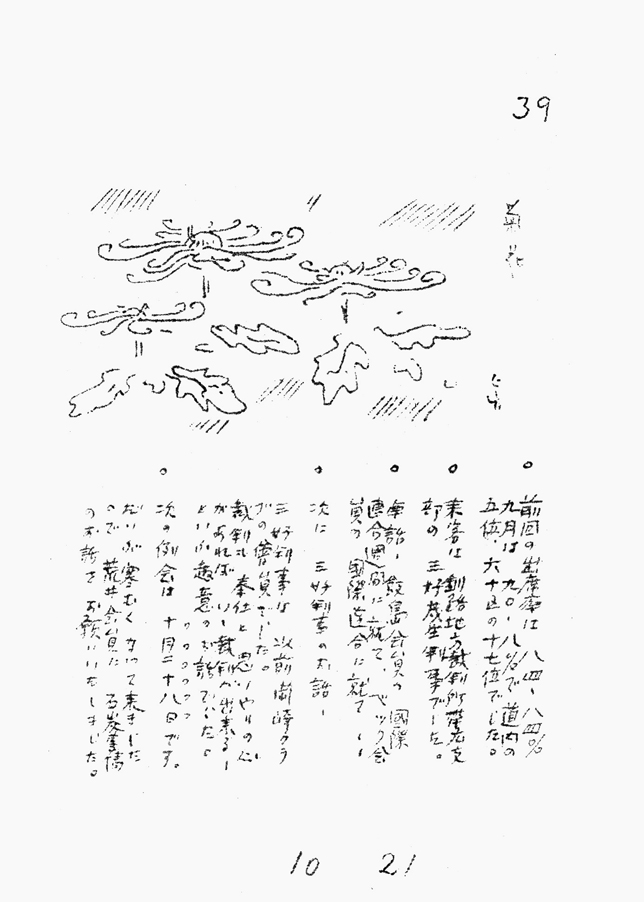 39
菊花
前回の出席率は 八四、八四%
九月は 九〇、八%で 道内の
五位、六十五の十七位でした。
来客は 釧路地方裁判所帯広支
部の 三好 判事でした。
卓話、鮫島会員の 國際
連合週間に就て、ベック会
員の 國際連合に就て、
次に 三好判事のお話、
三好判事は 以前 クラ
ブの會員でした。
裁判も 奉仕と 思いやりの心
があれば いい裁判が出来る、
という意意のお話でした。
次の例会は 十月二十八日です。
だいぶ寒むくなって来ました
ので 荒井会員に 石炭事情
のお話を お願いいたしました。
10 21